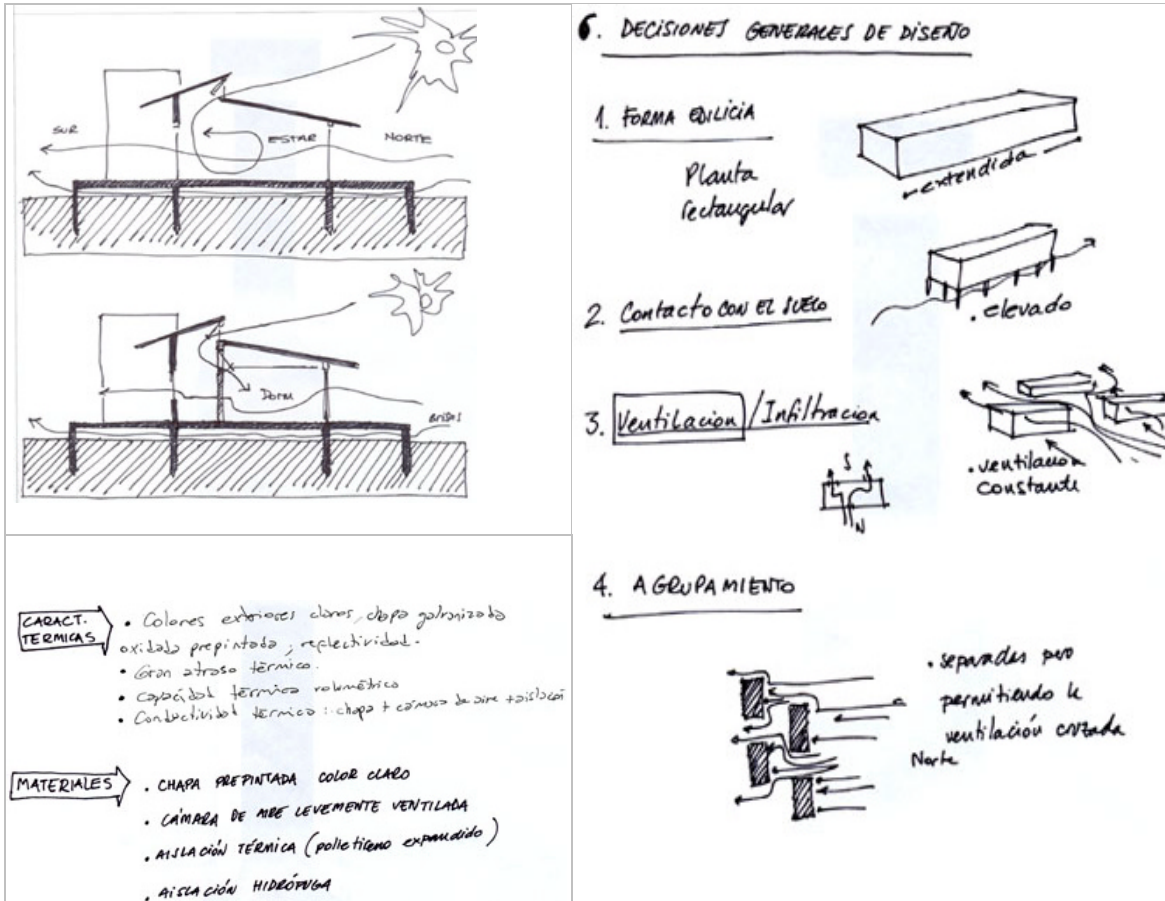 SUR
ESTAR
NORTE
DORM
BRISAS
CARACT. TERMICAS
• Colores exteriores claros, chapa galvanizada
oxidada prepintada; reflectividad.
• Gran atraso térmico.
• Capacidad térmica volumétrica
• Conductividad térmica: chapa + cámara de aire + aislación
MATERIALES
• CHAPA PREPINTADA COLOR CLARO
• CÁMARA DE AIRE LEVEMENTE VENTILADA
• AISLACIÓN TÉRMICA (polietileno expandido)
• AISLACIÓN HIDRÓFUGA
6. DECISIONES GENERALES DE DISEÑO
1. FORMA EDILICIA
Planta
rectangular
extendida
2. Contacto CON EL SUELO
• elevado
3. Ventilacion / Infiltracion
• ventilacion
constante
S
N
4. AGRUPAMIENTO
• separadas pero
permitiendo la
ventilación cruzada
Norte